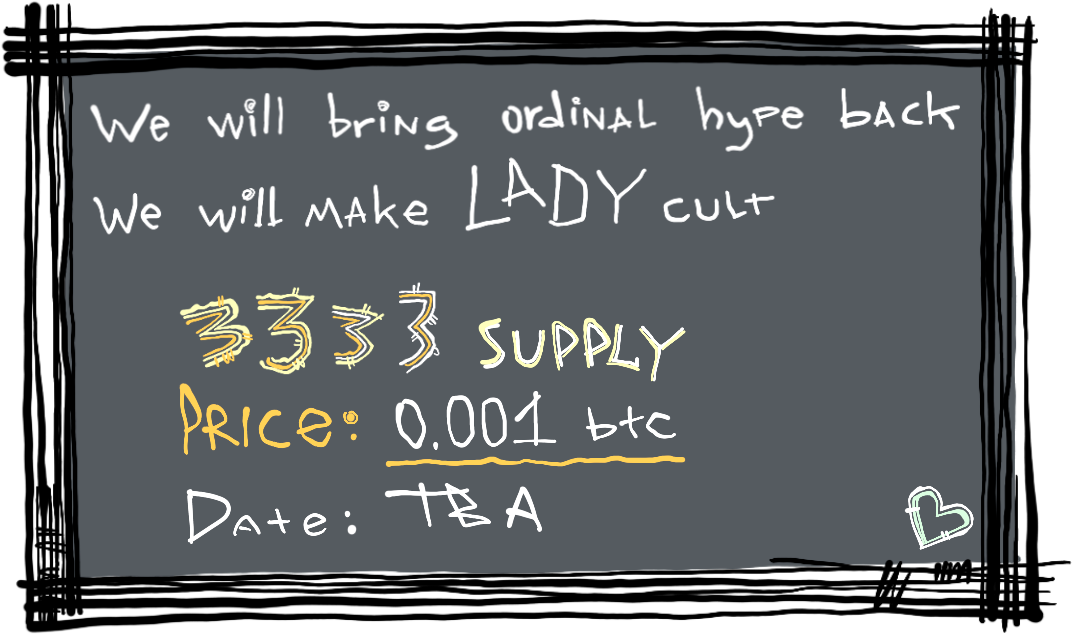 We will bring ordiNAL hype bACK
We will MAke LADY cuLt
3333 SUPPLY
PRICe: 0.001 btc
DAte: TBA